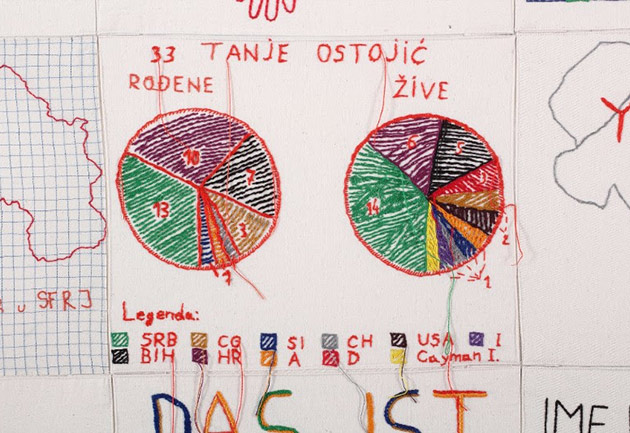 33 TANJE OSTOJIĆ
ROĐENE ŽIVE
10
7
3
1
13
6
5
2
1
14
U SFRJ
Legenda:
SRB CG SI CH USA I
BIH HR A D Cayman I.
DAS IST
IME